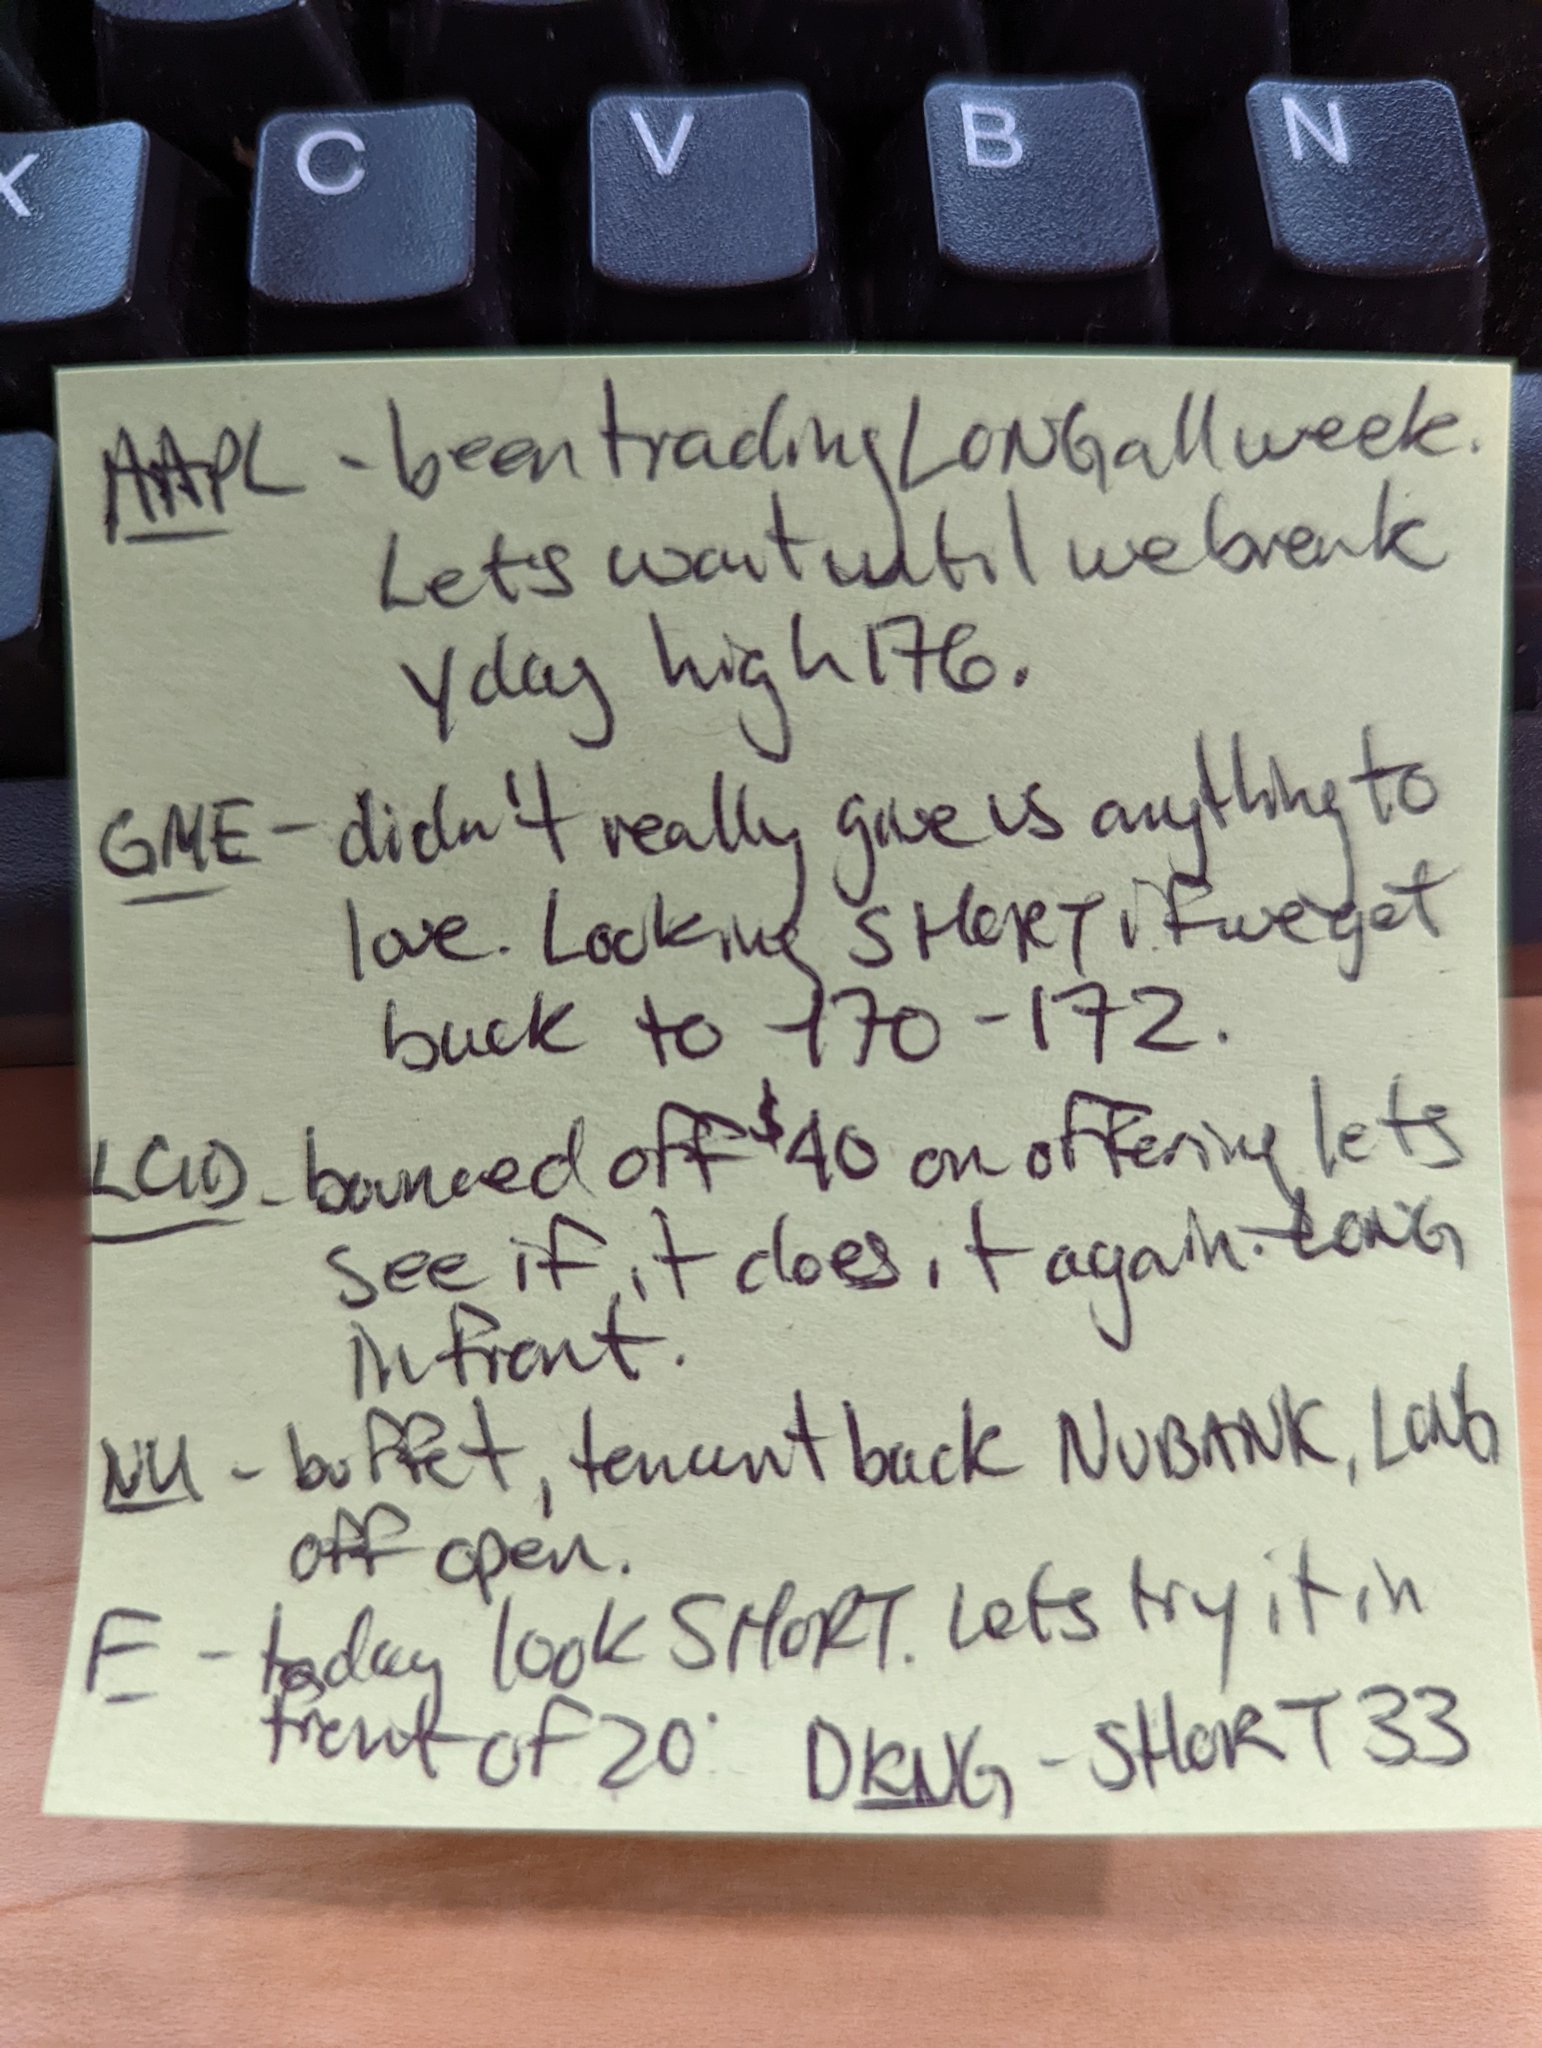 X C V B N
AAPL - been trading LONG all week.
Lets wait until we break
Yday high 176.
GME - didn't really give us anything to
love. Looking SHORT if we get
back to 170 - 172.
LCID - bounced off $40 on offering lets
see if it does it again. LONG
in front.
NU - buffet, tencent back NUBANK, LONG
off open.
F - today look SHORT. Lets try it in
front of 20.
DKNG - SHORT 33